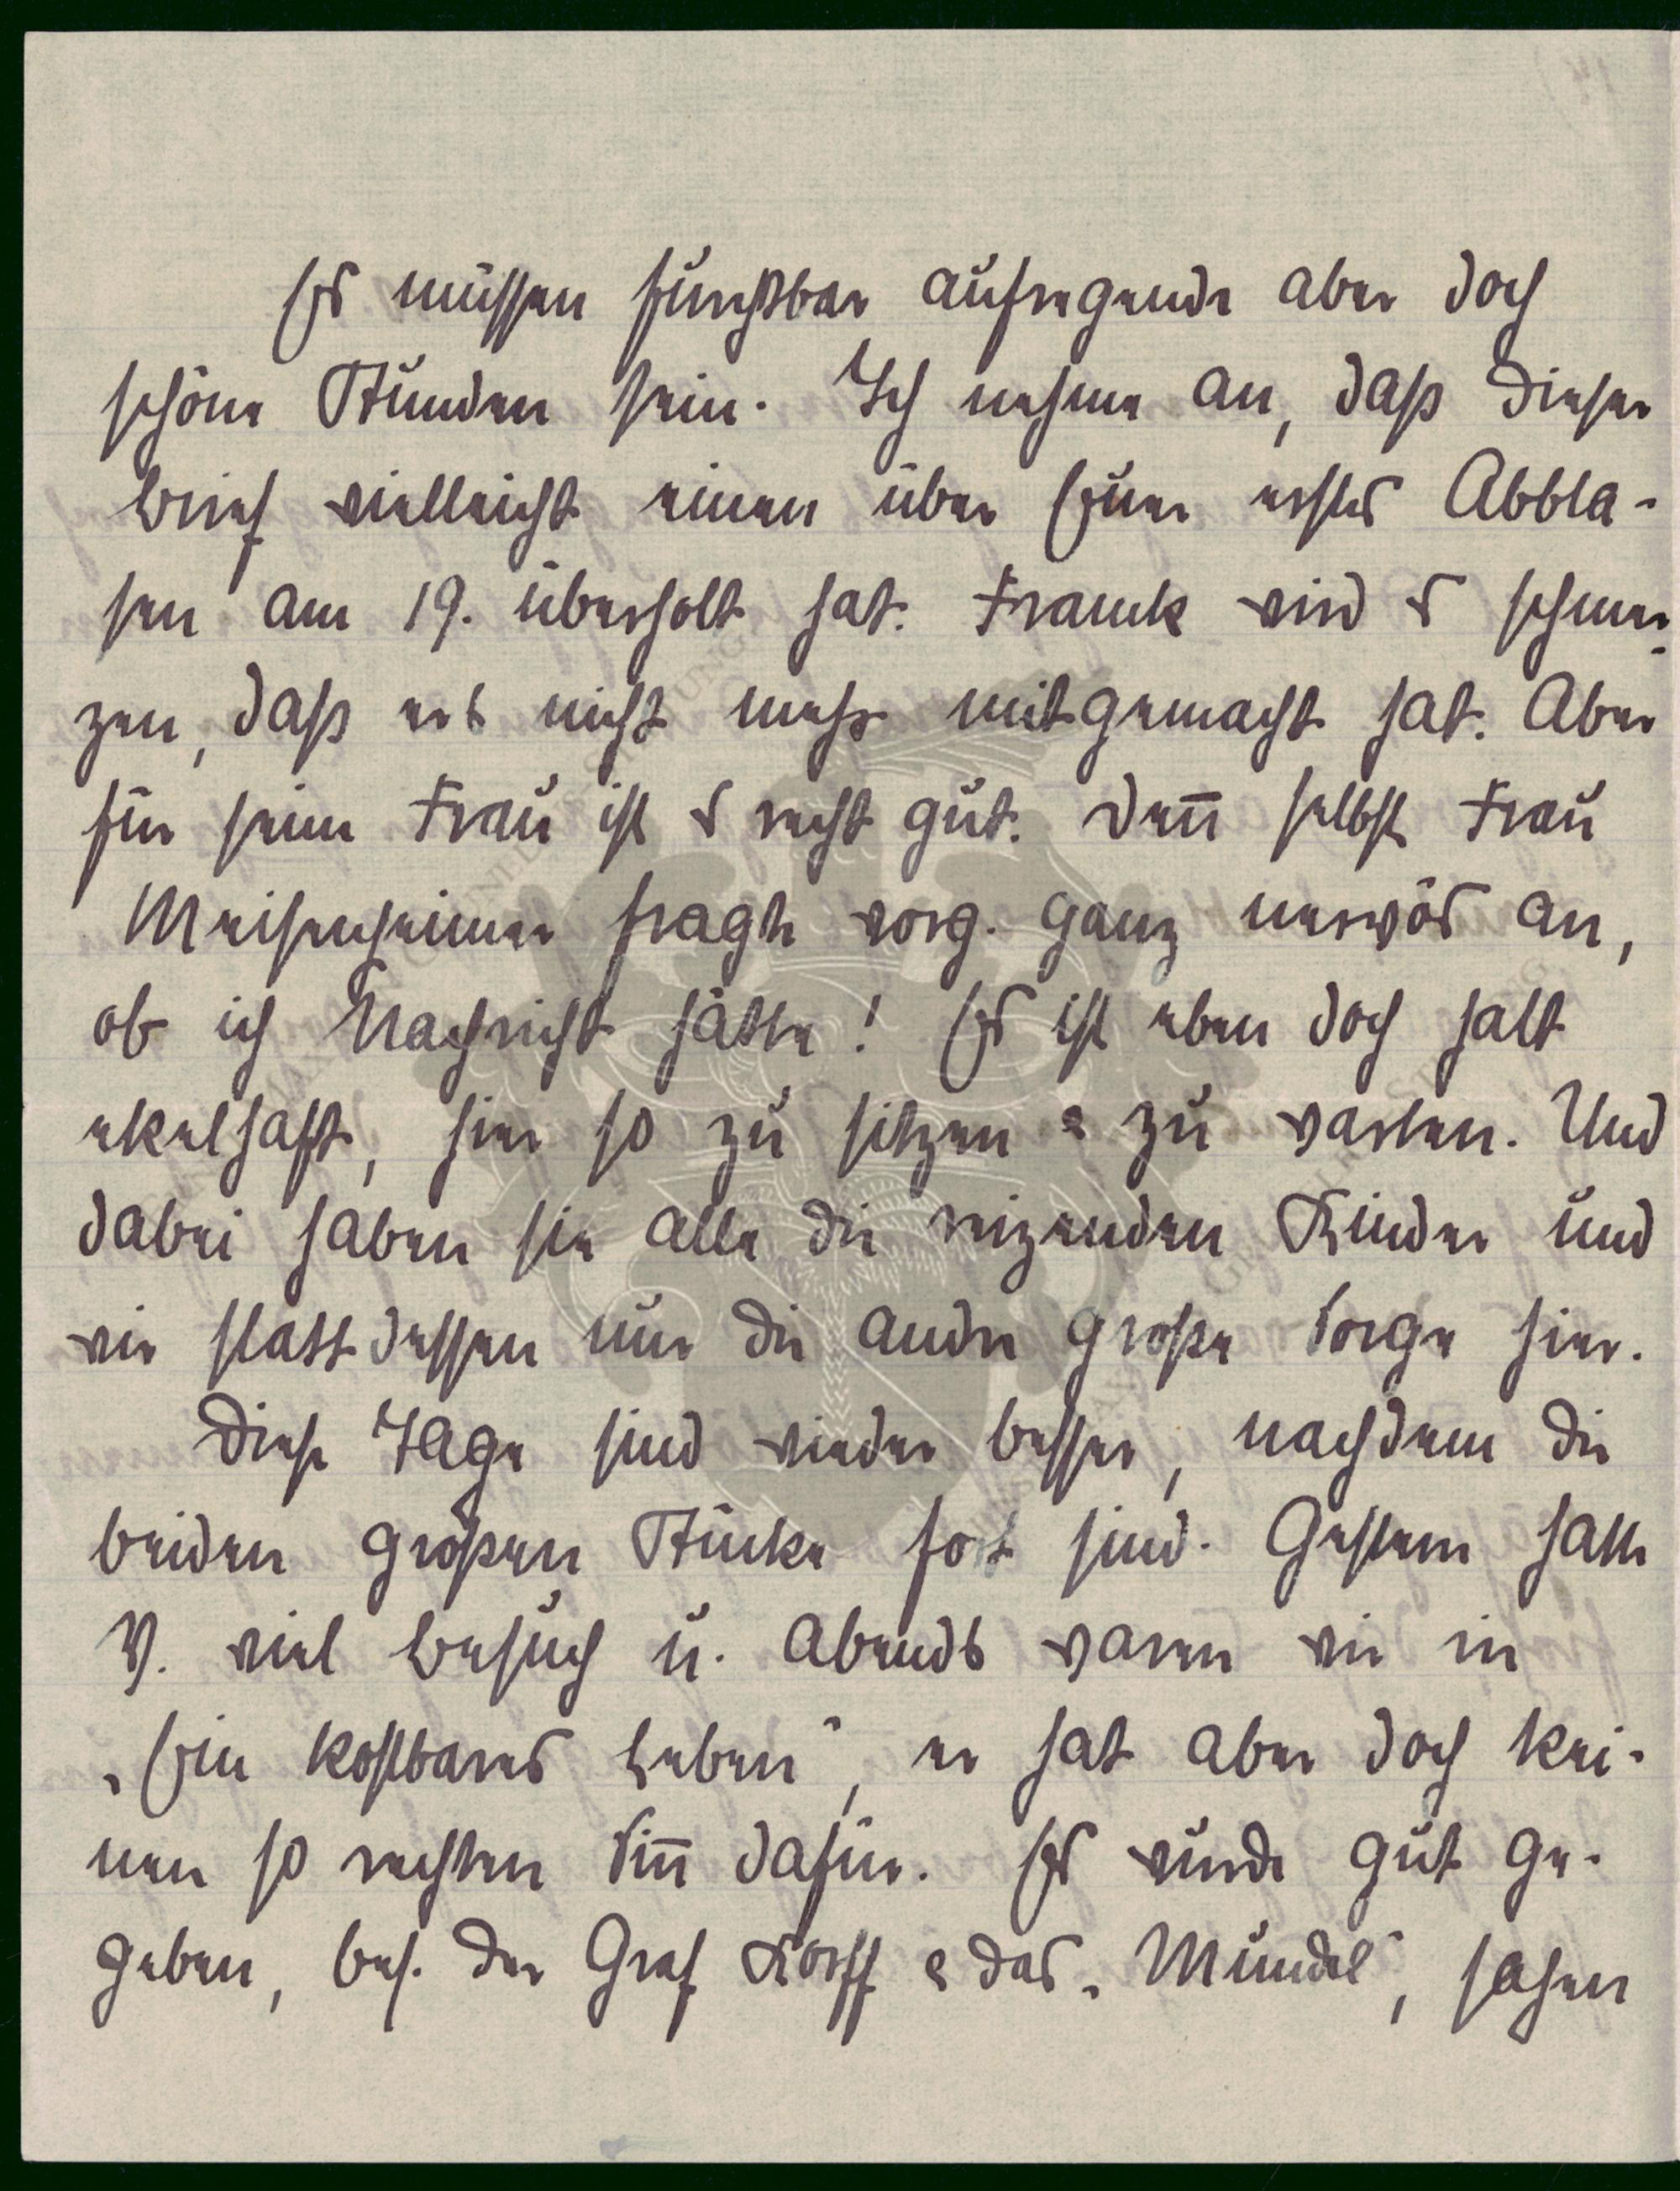 Es müssen furchtbar aufregende aber doch
schöne Stunden sein. Ich nehme an, daß dieser
Brief vielleicht einen über Euer erstes Abbla-
sen am 19. überholt hat. Franck wird es schmer-
zen, daß ers nicht mehr mitgemacht hat. Aber
für seine Frau ist es recht gut. Denn selbst Frau
Meisenheimer fragte vorg. ganz nervös an,
ob ich Nachricht hätte! Es ist eben doch halt
ekelhaft, hier so zu sitzen & zu warten. Und
dabei haben sie alle die reizenden Kinder und
wir statt dessen nur die andre große Sorge hier.
Diese Tage sind wieder besser, nachdem die
beiden großen Stücke fort sind. Gestern hatte
V. viel Besuch u. abends waren wir in
„Ein kostbares Leben“, er hat aber doch kei-
nen so rechten Sinn dafür. Es wurde gut ge-
geben, bes. der Graf Korff & das „Mündel“, sahen